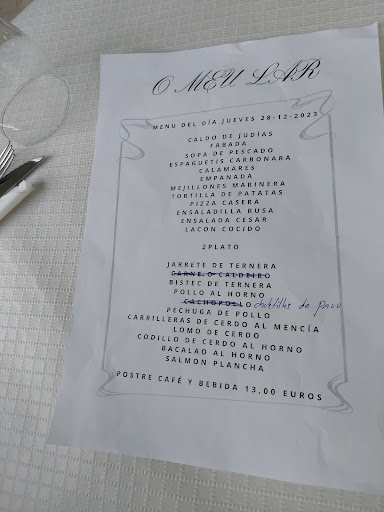 O MEU LAR
MENU DEL DÍA JUEVES 28-12-2023
CALDO DE JUDÍAS
FABADA
SOPA DE PESCADO
ESPAGUETIS CARBONARA
CALAMARES
EMPANADA
MEJILLONES MARINERA
TORTILLA DE PATATAS
PIZZA CASERA
ENSALADILLA RUSA
ENSALADA CESAR
LACON COCIDO
2PLATO
JARRETE DE TERNERA
CARNE O CALDEIRO
BISTEC DE TERNERA
POLLO AL HORNO
CACHOPOLLO chuletillas de pavo
PECHUGA DE POLLO
CARRILLERAS DE CERDO AL MENCÍA
LOMO DE CERDO
CODILLO DE CERDO AL HORNO
BACALAO AL HORNO
SALMON PLANCHA
POSTRE CAFÉ Y BEBIDA 13,00 EUROS